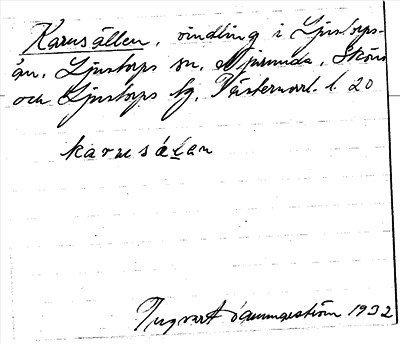 Karusällen, vindling i Ljustorps-
ån, Ljustorps sn, Njurunda, Sköns
och Ljustorps tg, Västernorrl. l. 20
karusälan
Ingvart 1932